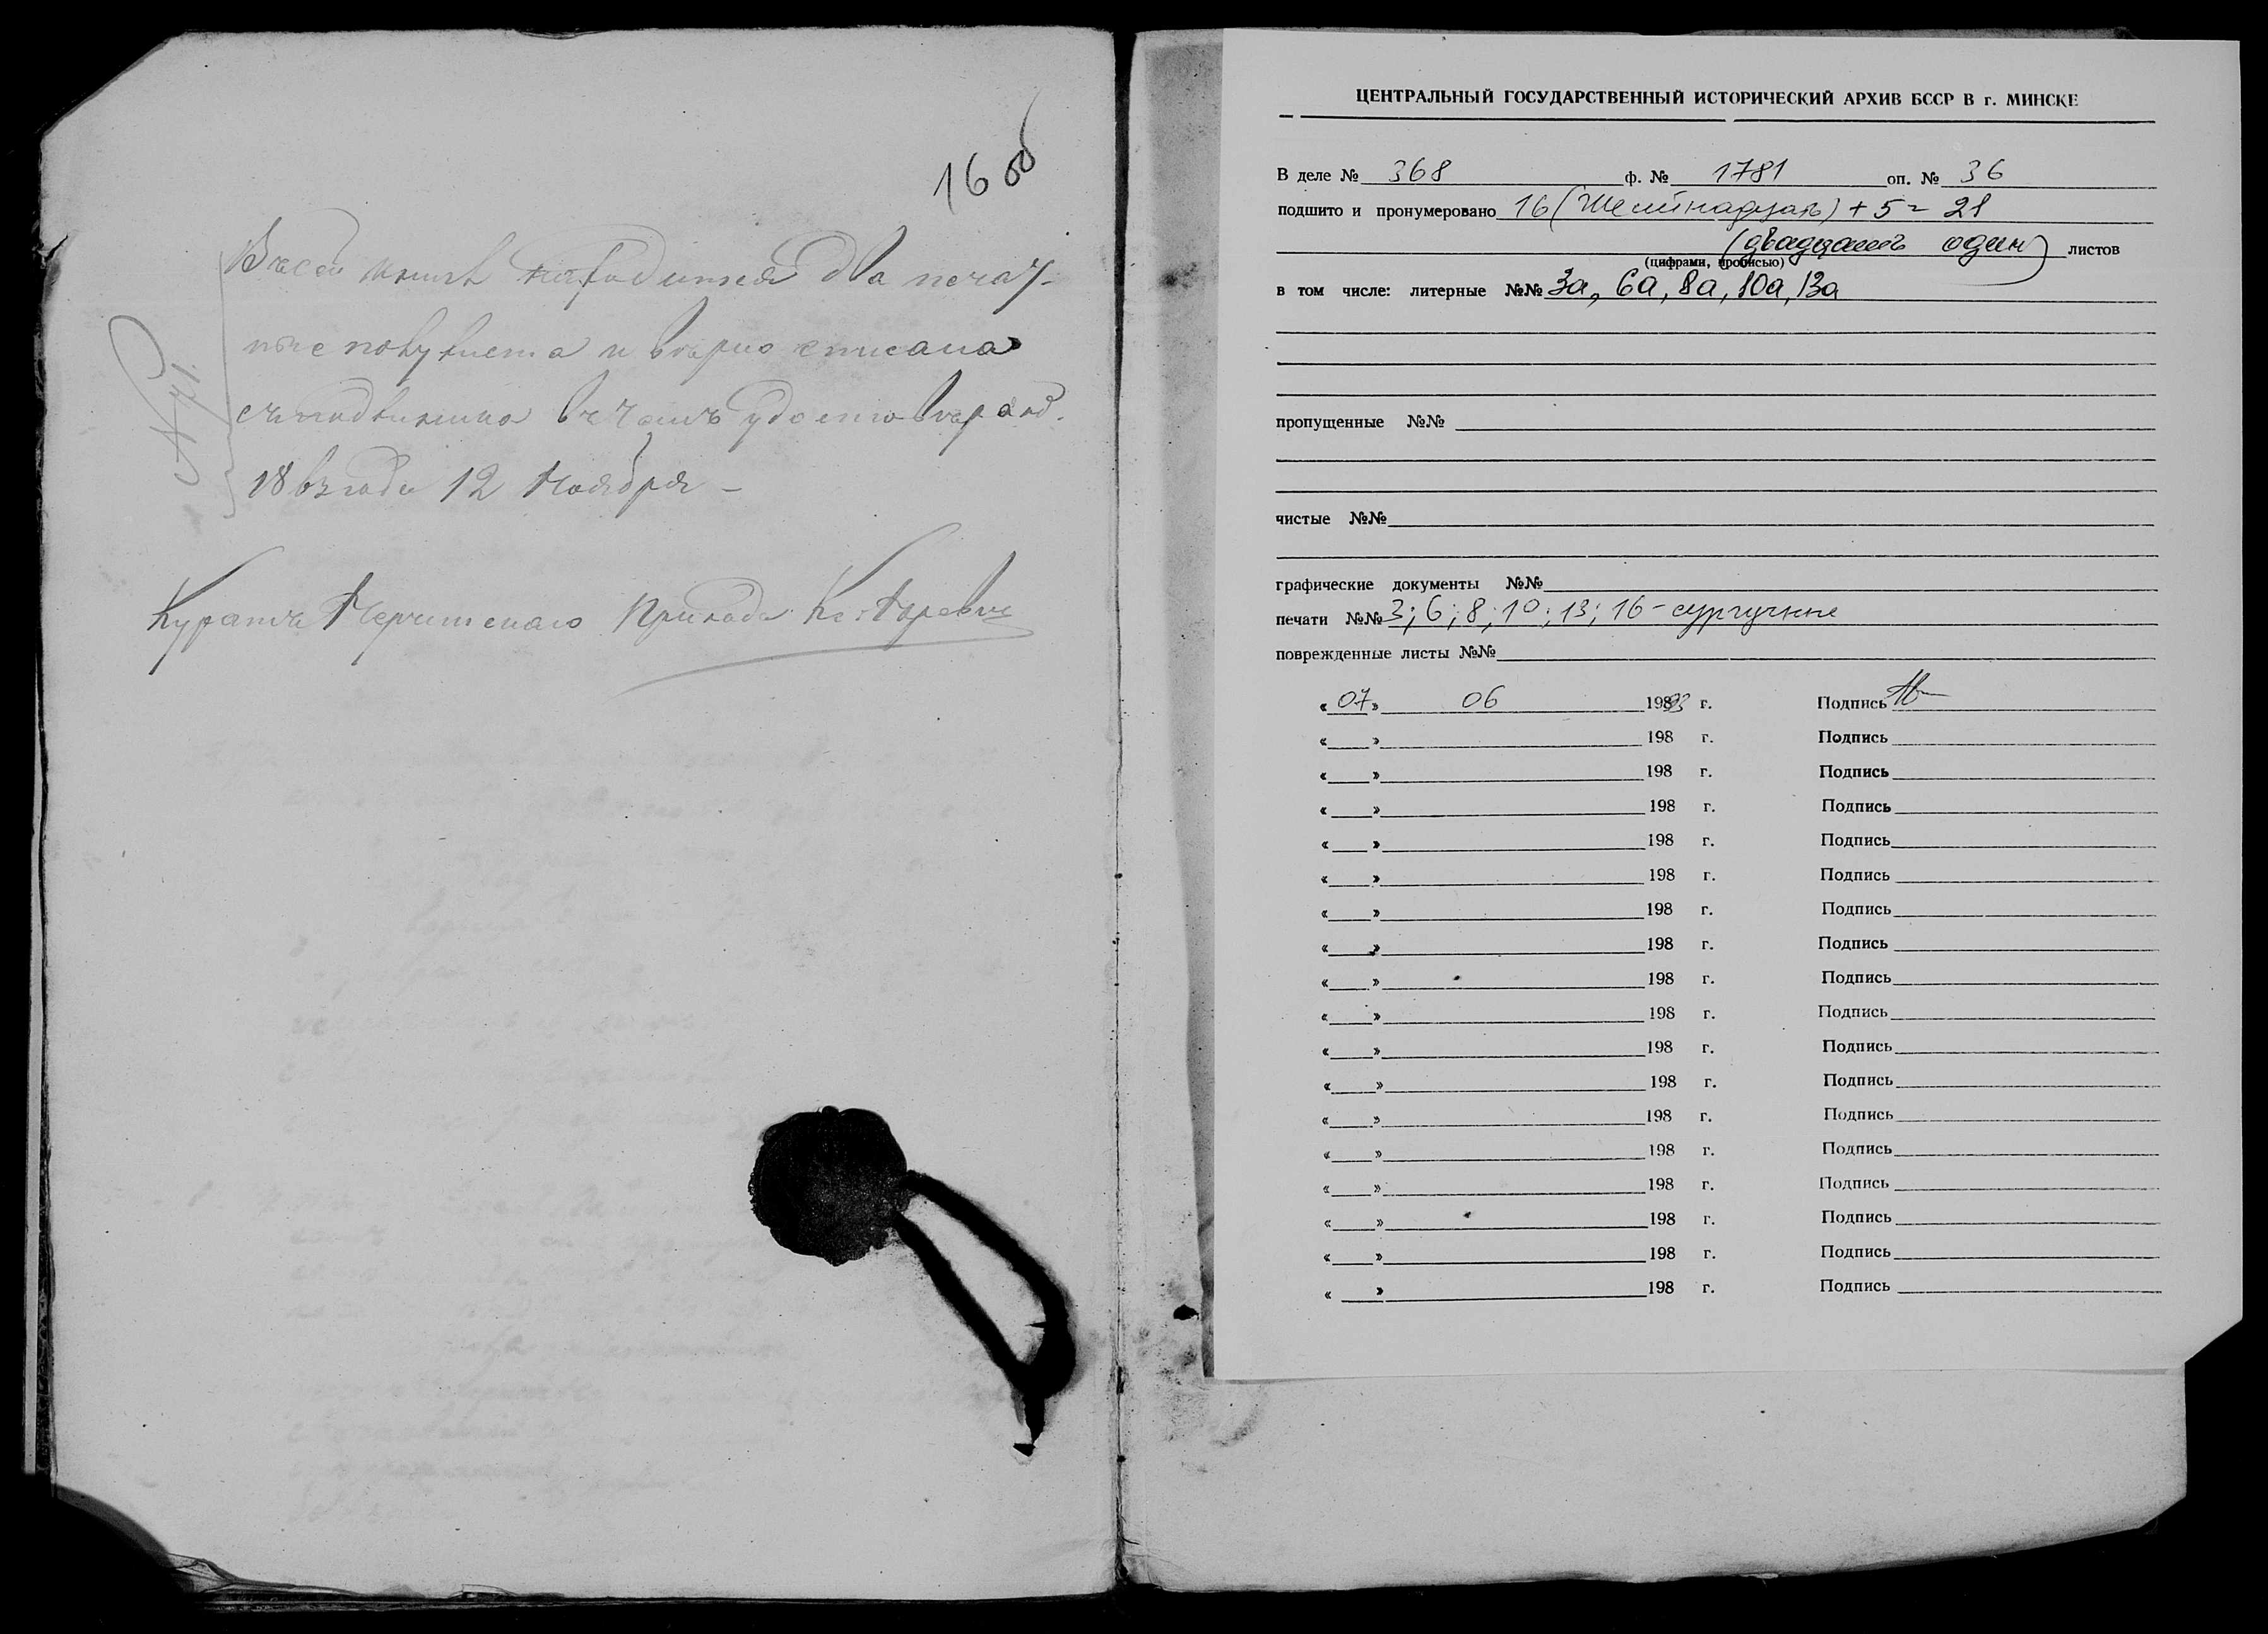 16 об
В сей книгѣ находится два печат-
ные полулиста и вѣрно списана
съ подлинника въ чемъ удостовѣряю.
186 года 12 Ноября –
Куратъ Прихода
ЦЕНТРАЛЬНЫЙ ГОСУДАРСТВЕННЫЙ ИСТОРИЧЕСКИЙ АРХИВ БССР В г. МИНСКЕ
В деле № 368 ф. № 1781 оп. № 36
подшито и пронумеровано 16 (Шестнадцать) + 5 = 21
(двадцать один) листов
(цифрами, прописью)
в том числе: литерные №№ 3а, 6а, 8а, 10а, 13а
пропущенные №№
чистые №№
графические документы №№
печати №№ 3; 6; 8; 10; 13; 16 - сургучные
поврежденные листы №№
« 07 » 06 1993 г. Подпись
« » 198 г. Подпись
« » 198 г. Подпись
« » 198 г. Подпись
« » 198 г. Подпись
« » 198 г. Подпись
« » 198 г. Подпись
« » 198 г. Подпись
« » 198 г. Подпись
« » 198 г. Подпись
« » 198 г. Подпись
« » 198 г. Подпись
« » 198 г. Подпись
« » 198 г. Подпись
« » 198 г. Подпись
« » 198 г. Подпись
« » 198 г. Подпись
« » 198 г. Подпись